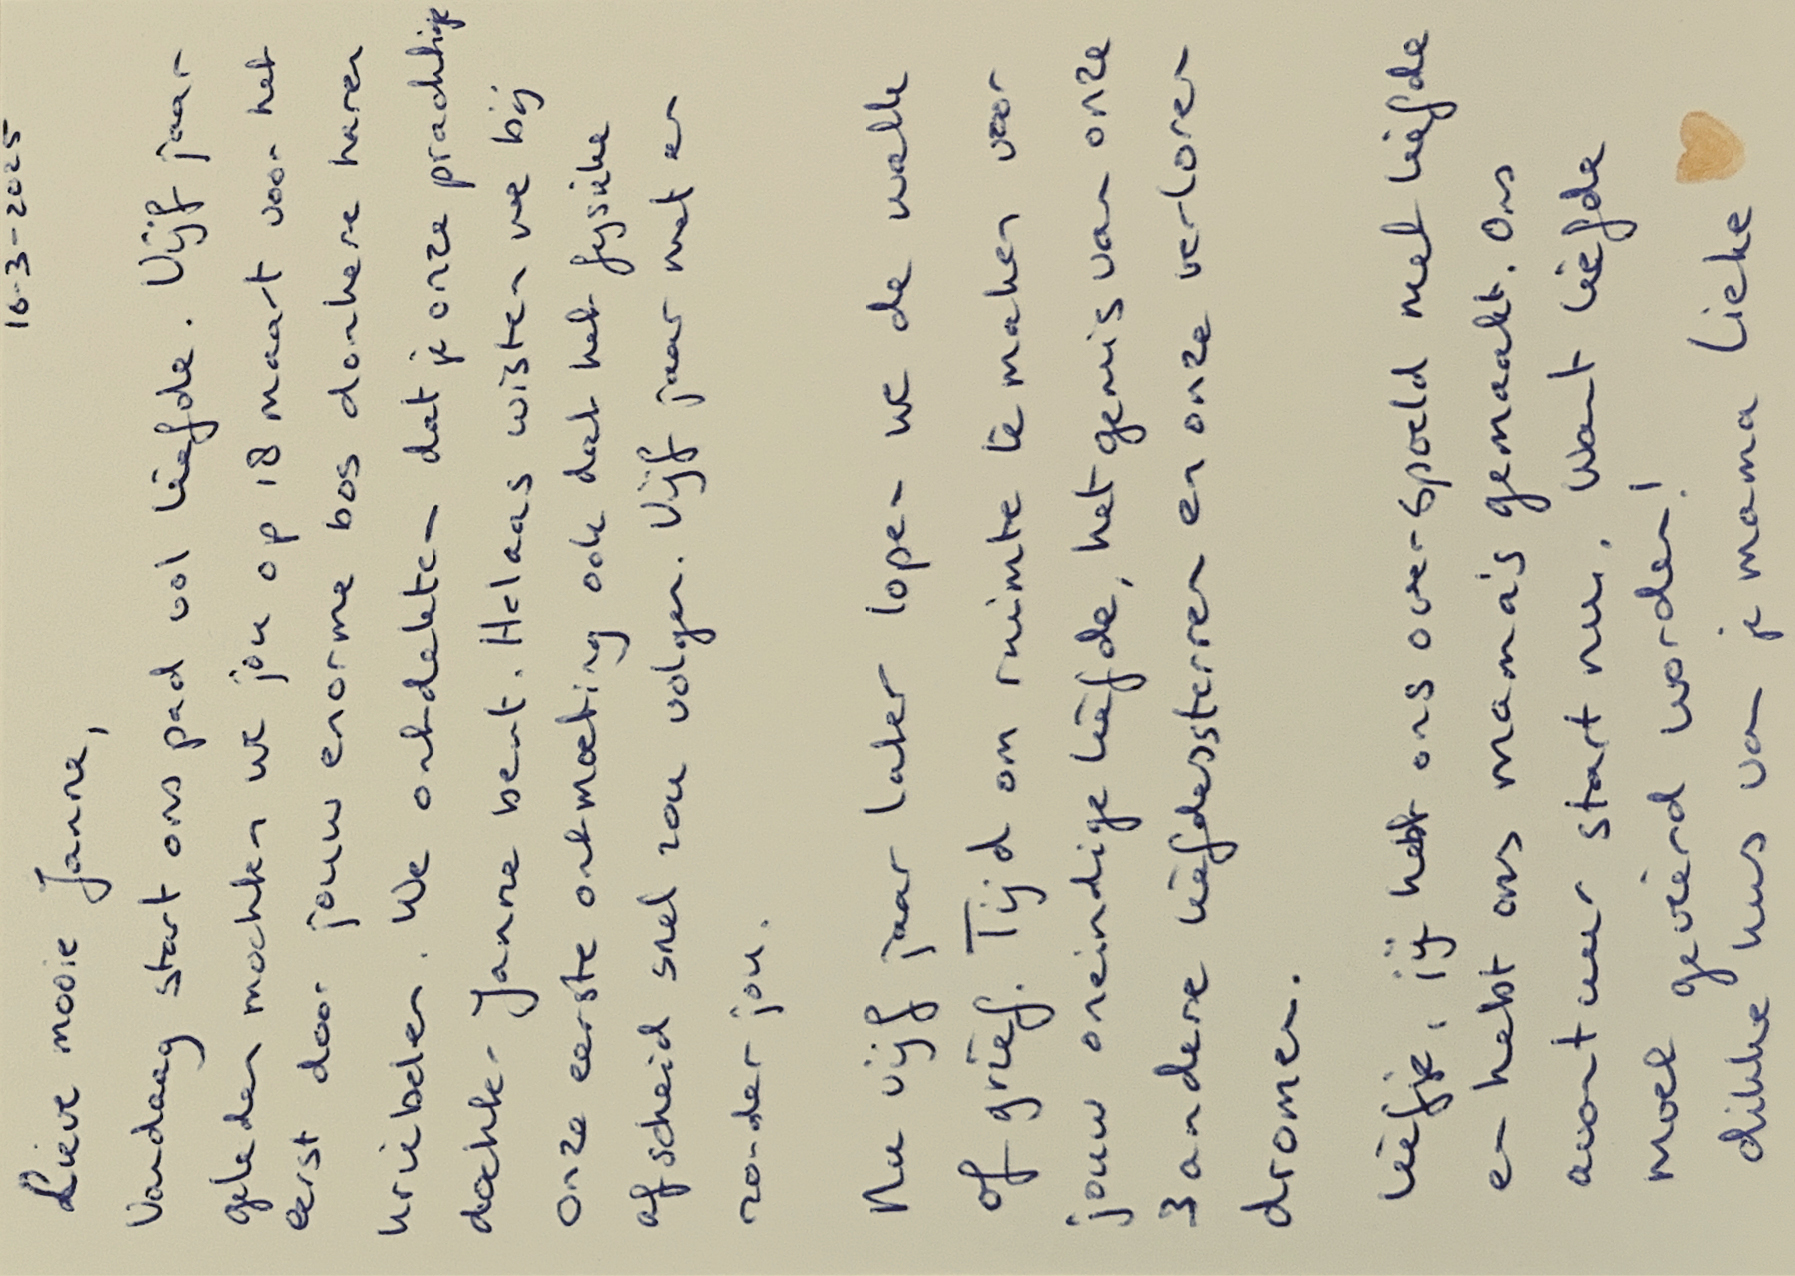 16-3-2025
Lieve mooie Janne,
Vandaag start ons pad vol liefde. Vijf jaar
geleden mochten we jou op 18 maart voor het
eerst door jouw enorme bos donkere haren
kriebelen. We ontdekten dat je onze prachtige
dochter Janne bent. Helaas wisten we bij
onze eerste ontmoeting ook dat het fysieke
afscheid snel zou volgen. Vijf jaar met en
zonder jou.
Nu vijf jaar later lopen we de walk
of grief. Tijd om ruimte te maken voor
jouw oneindige liefde, het gemis van onze
3 andere liefdessterren en onze verloren
dromen.
Liefje, jij hebt ons overspoeld met liefde
en hebt ons mama's gemaakt. Ons
avontuur start nu, want liefde
moet gevierd worden!
dikke kus van je mama Lieke